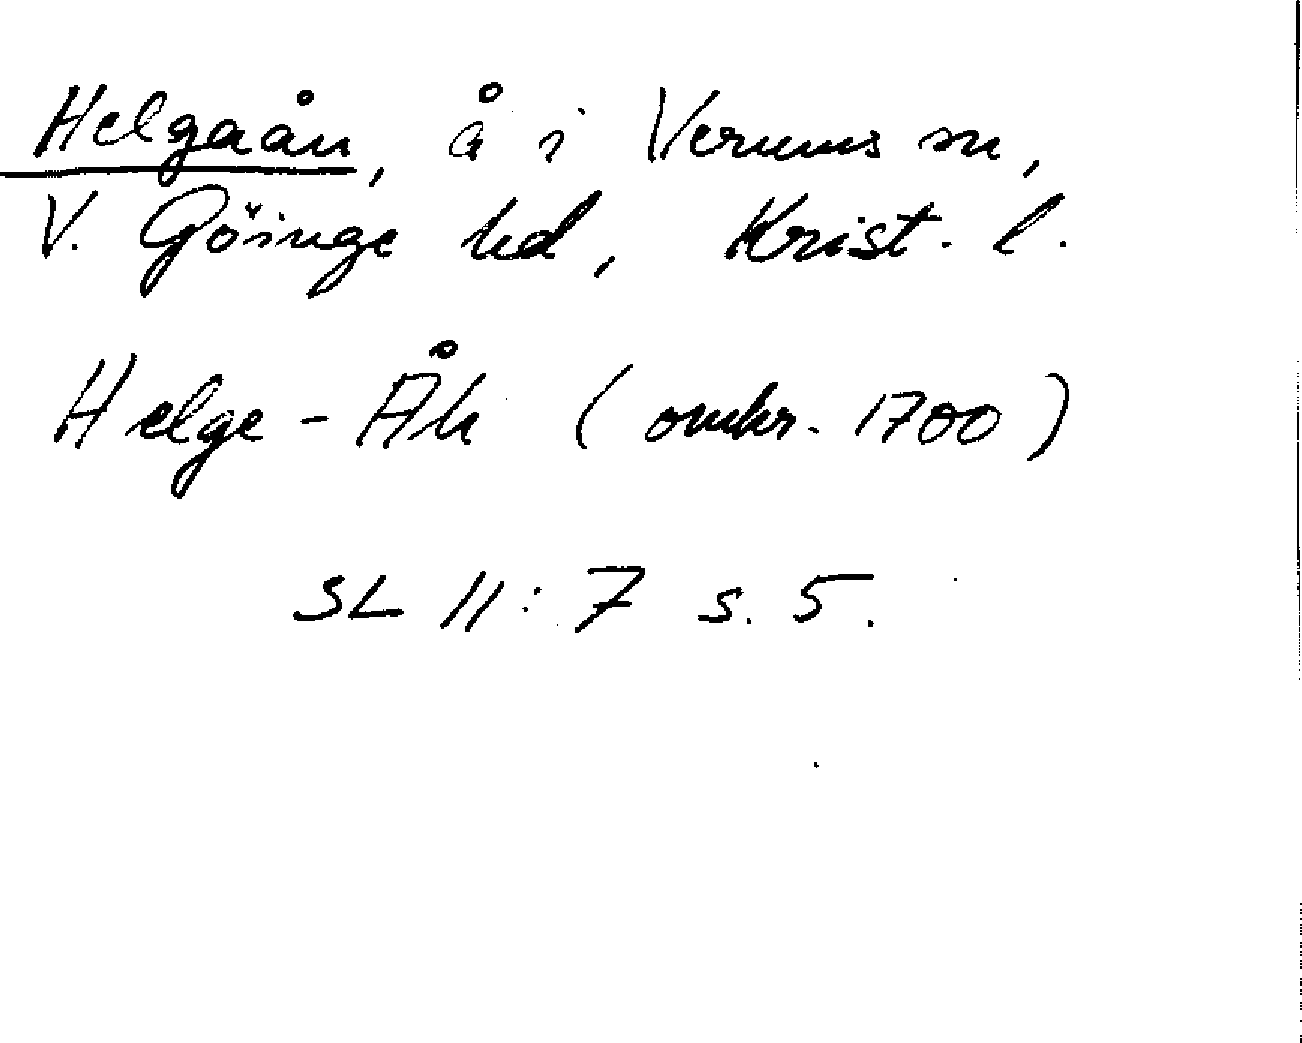 Helgaån, å i Verums sn,
V. Göinge hd, Krist. l.
Helge-Åh (omkr. 1700)
SL II:7 s. 5.